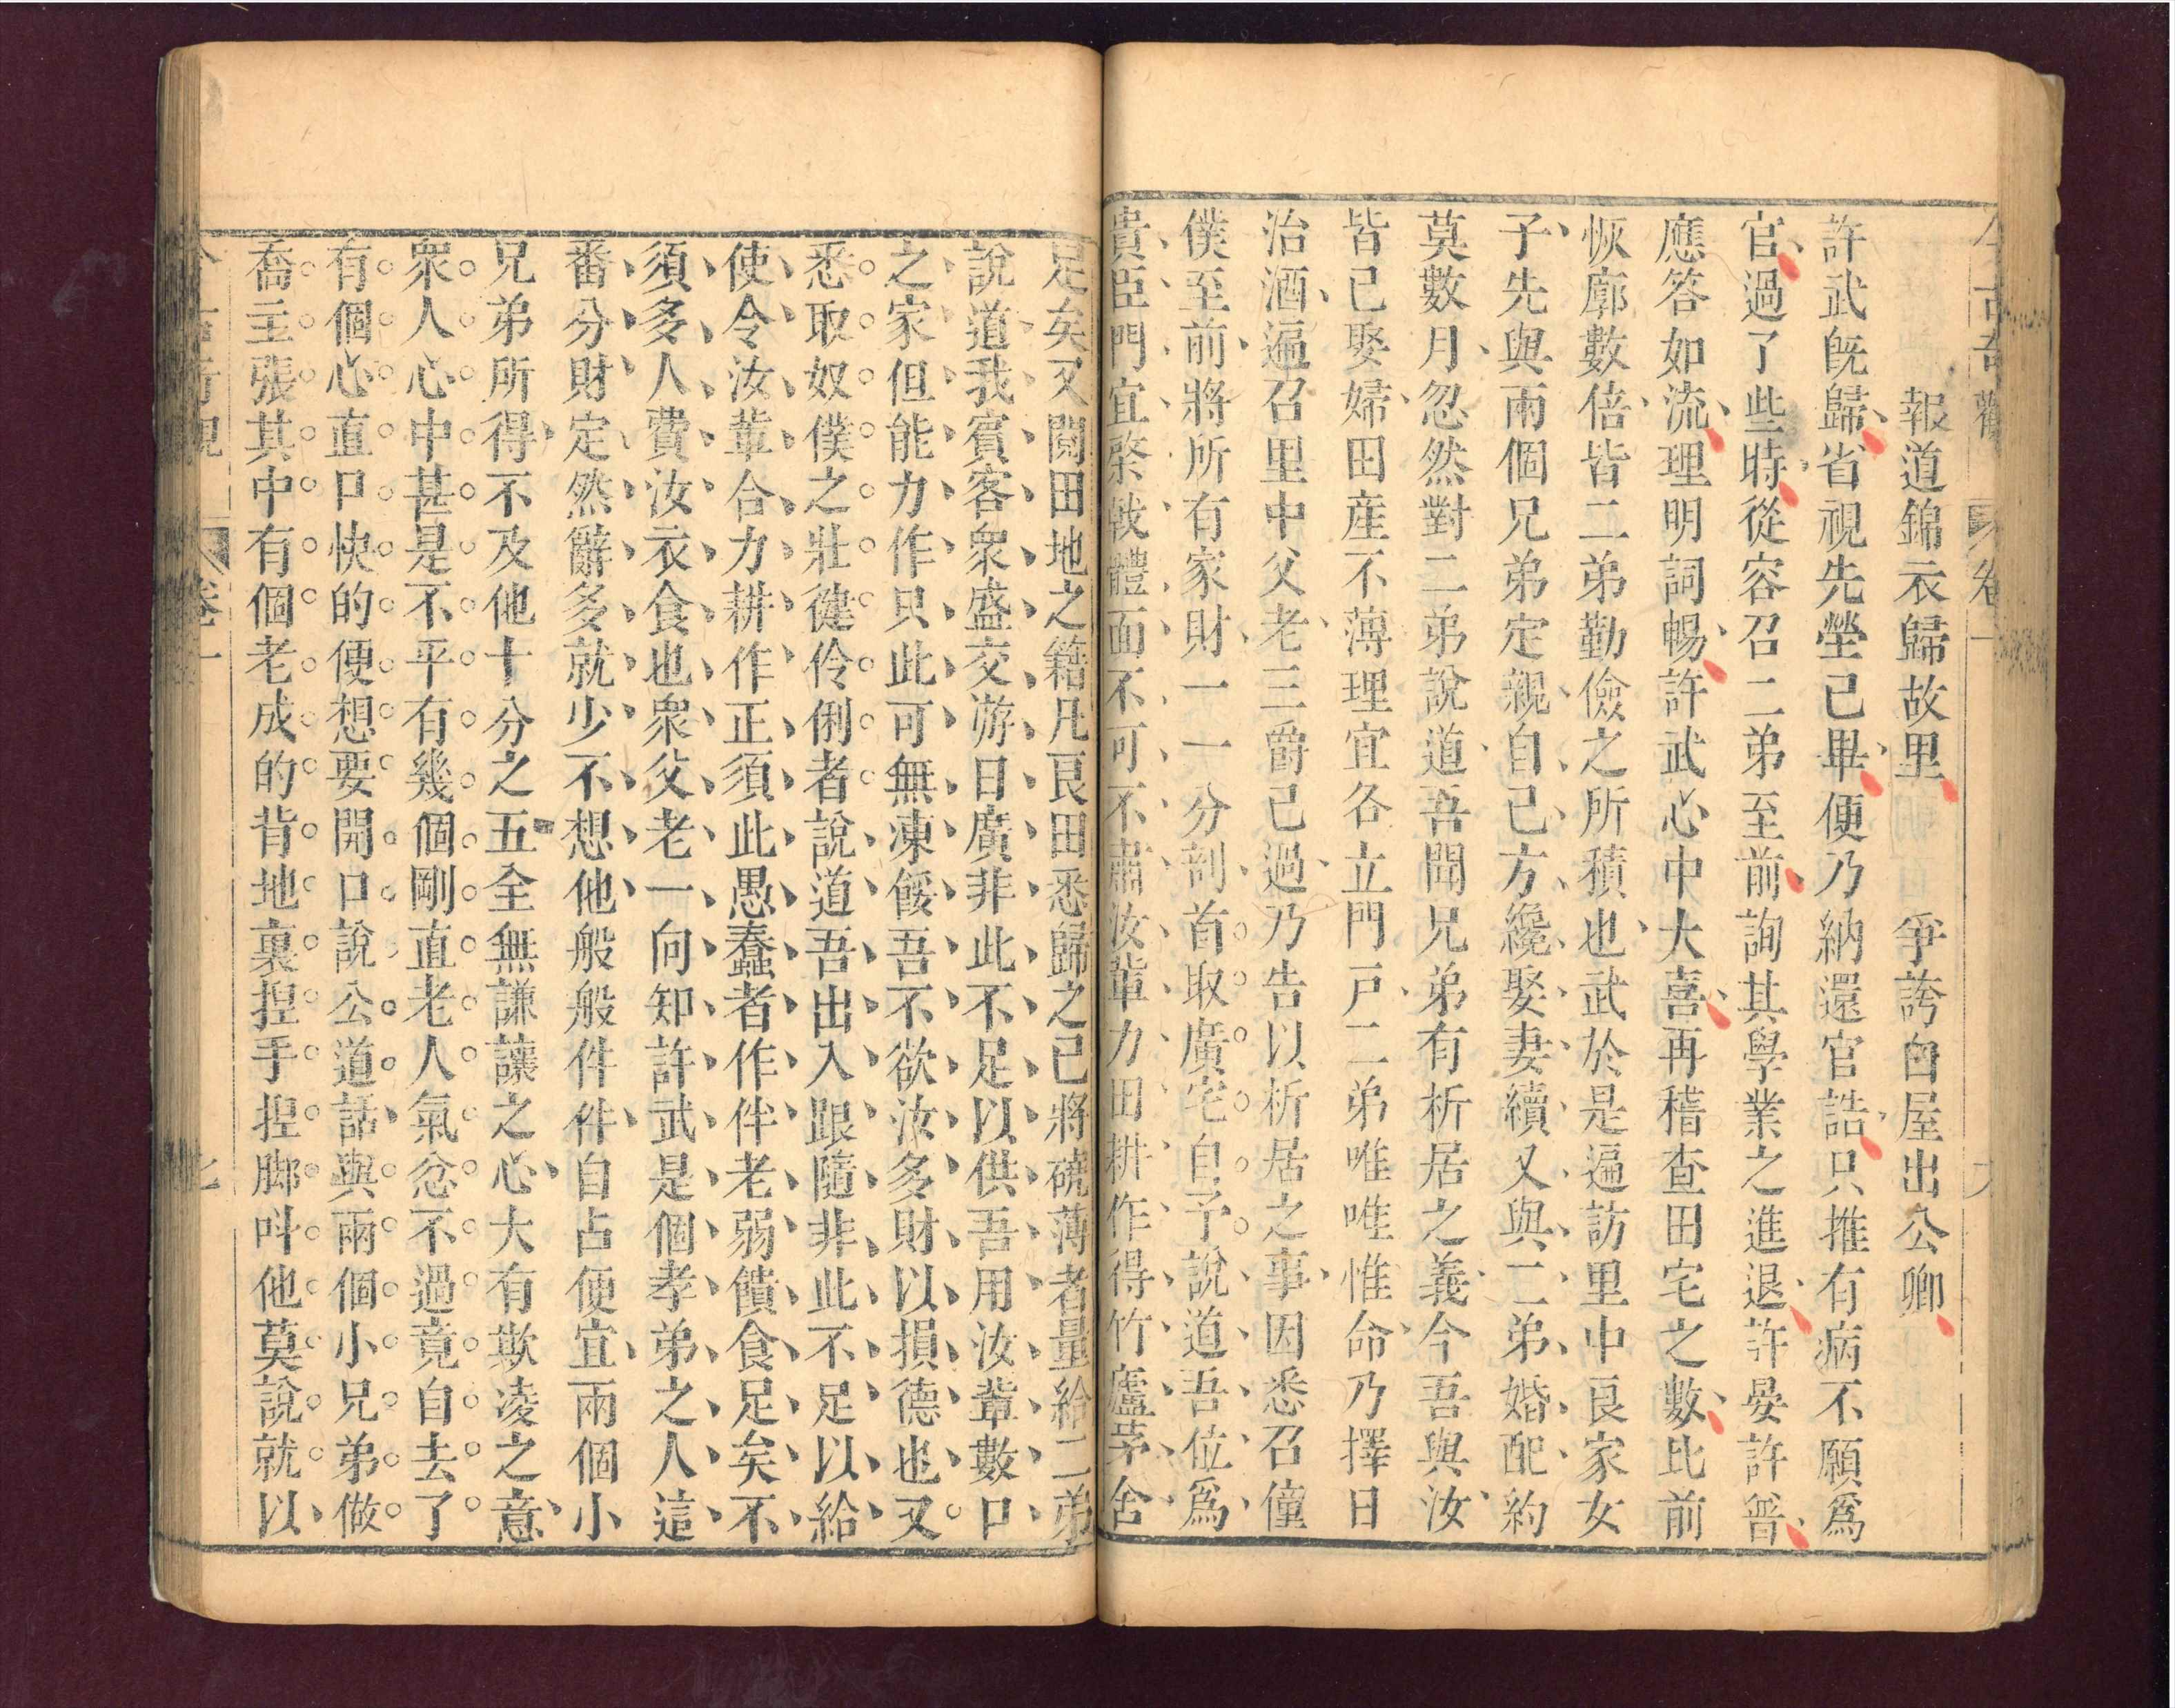 今古奇觀 卷一
報道錦衣歸故里 爭誇白屋出公卿
許武旣歸省視先塋已畢便乃納還官誥只推有病不願爲
官過了些時從容召二弟至前詢其學業之進退許晏許普
應答如流理明詞暢許武心中大喜再稽查田宅之數比前
恢廓數倍皆二弟勤儉之所積也武於是遍訪里中良家女
子先與兩個兄弟定親自己方纔娶妻續又與二弟婚配約
莫數月忽然對二弟說道吾聞兄弟有析居之義今吾與汝
皆已娶婦田產不薄理宜各立門戸二弟唯唯惟命乃擇日
治酒遍召里中父老三爵已過乃告以析居之事因悉召僮
僕至前將所有家財一一分剖首取廣宅自予說道吾位爲
貴臣門宜棨戟體面不可不肅汝輩力田耕作得竹廬茅舍
足矣又閱田地之籍凡良田悉歸之已將磽薄者量給二弟
說道我賓客衆盛交游日廣非此不足以供吾用汝輩數口
之家但能力作只此可無凍餒吾不欲汝多財以損德也又
悉取奴僕之壯健伶俐者說道吾出入跟隨非此不足以給
使令汝輩合力耕作正須此愚蠢者作伴老弱饋食足矣不
須多人費汝衣食也衆父老一向知許武是個孝弟之人這
番分財定然辭多就少不想他般般件件自占便宜兩個小
兄弟所得不及他十分之五全無謙讓之心大有欺凌之意
衆人心中甚是不平有幾個剛直老人氣忿不過竟自去了
有個心直口快的便想要開口說公道話與兩個小兄弟做
喬主張其中有個老成的背地裏捏手捏脚呌他莫說就以
今古奇觀 卷一